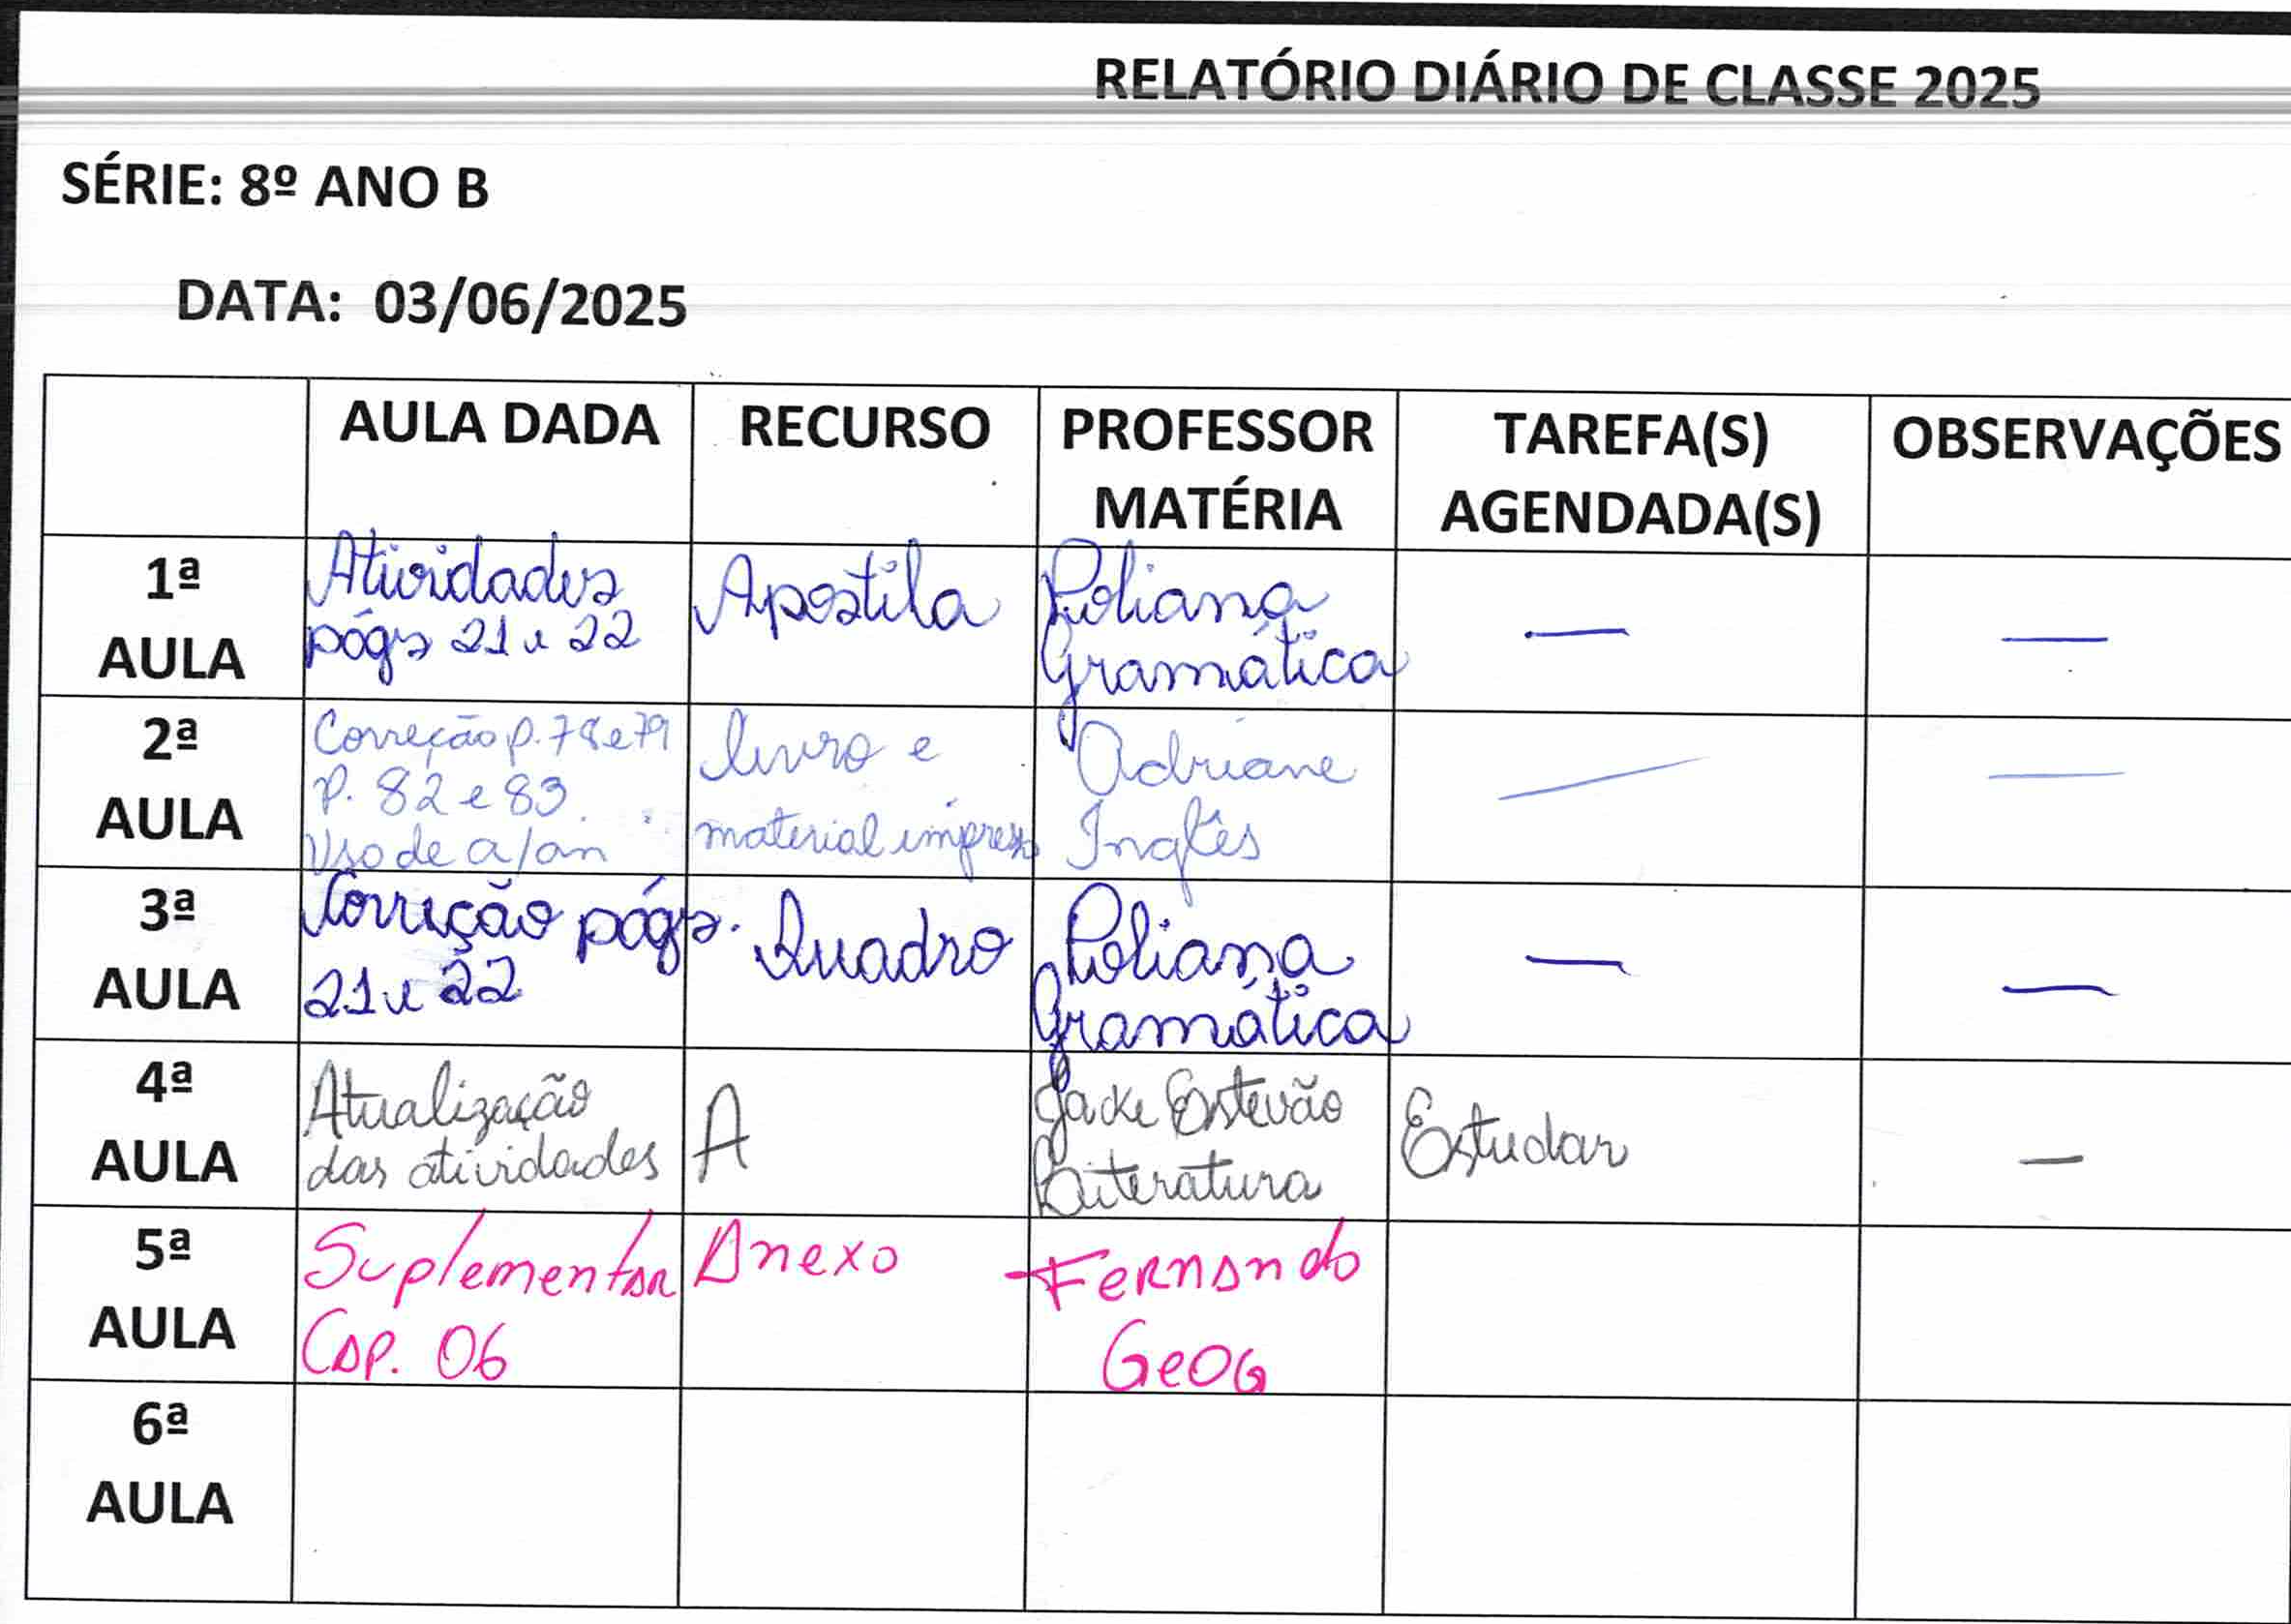 RELATÓRIO DIÁRIO DE CLASSE 2025
SÉRIE: 8º ANO B
DATA: 03/06/2025
AULA DADA
RECURSO
PROFESSOR
MATÉRIA
TAREFA(S)
AGENDADA(S)
OBSERVAÇÕES
1ª
AULA
Atividades
págs 21 e 22
Apostila
Poliana
Gramática
—
—
2ª
AULA
Correção p. 78 e 79
P. 82 e 83.
Uso de a/an
livro e
material impresso
Adriane
Inglês
—
—
3ª
AULA
Correção págs.
21 e 22
Quadro
Poliana
Gramática
—
—
4ª
AULA
Atualização
das atividades
A
Jacke Estevão
Literatura
Estudar
—
5ª
AULA
Suplementar
Cap. 06
Anexo
Fernando
Geog
6ª
AULA